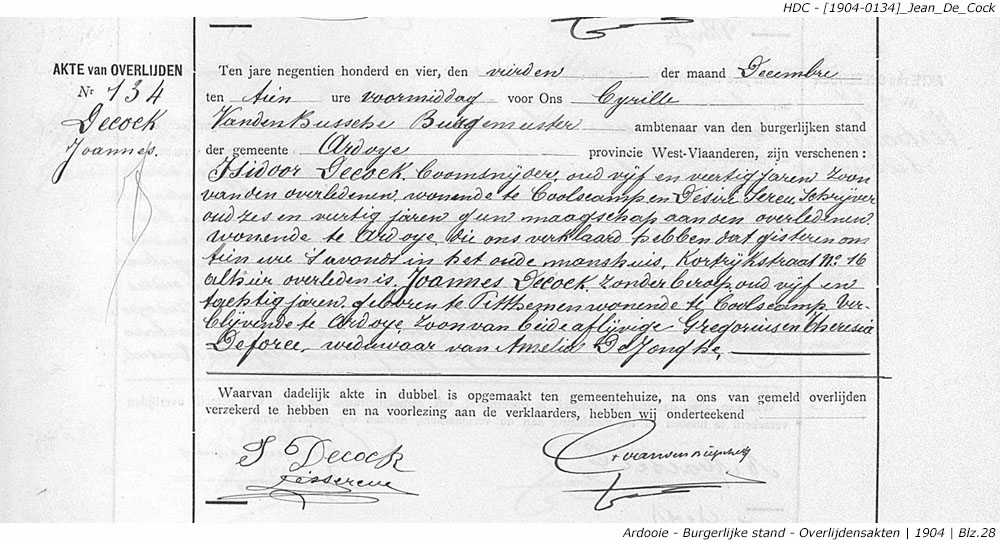 HDC - [1904-0134]_Jean_De_Cock
AKTE van OVERLIJDEN
Nr 134
Decock
Joannes.
Ten jare negentien honderd en vier, den vierden der maand Decembre
ten tien ure voormiddag voor Ons Cyrille
VandenBussche Burgemeester ambtenaar van den burgerlijken stand
der gemeente Ardoye provincie West-Vlaanderen, zijn verschenen :
Isidoor Decock, boomsnijder, oud vijf en veertig jaren zoon
van den overledenen, wonende te Coolscamp en Désiré Sereu, schrijver
oud zes en veertig jaren geen maagschap aan den overledenen
wonende te Ardoye, die ons verklaard hebben dat gisteren om
tien ure 's avonds in het oude manshuis, Kortrijkstraat No 16
alhier overleden is, Joannes Decock, zonder beroep, oud vijf en
tachtig jaren, geboren te Pitthem en wonende te Coolscamp, ver-
blijvende te Ardoye, zoon van beide aflijvige Gregorius en Theresia
Deforce, weduwaar van Amelia DeJonghe,
Waarvan dadelijk akte in dubbel is opgemaakt ten gemeentehuize, na ons van gemeld overlijden
verzekerd te hebben en na voorlezing aan de verklaarders, hebben wij onderteekend
I Decock
Ardooie - Burgerlijke stand - Overlijdensakten | 1904 | Blz.28